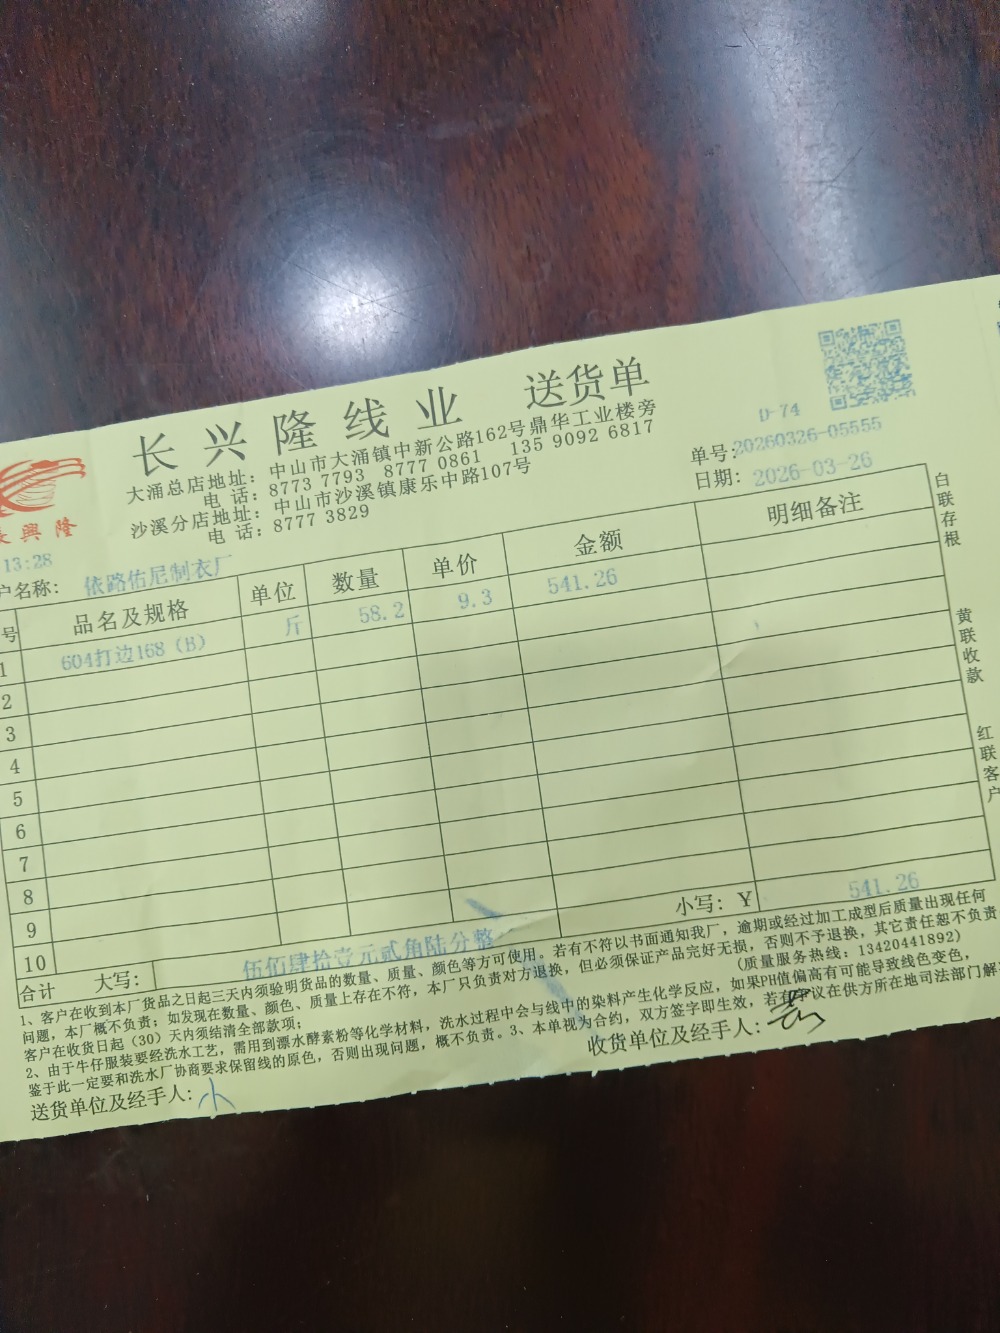 长兴隆线业 送货单
大涌总店地址：中山市大涌镇中新公路162号鼎华工业楼旁
电 话：8773 7793 8777 0861 135 9092 6817
沙溪分店地址：中山市沙溪镇康乐中路107号
电 话：8777 3829
D-74
单号：20260326-05555
日期：2026-03-26
長興隆
13:28
户名称：依路佑尼制衣厂
号 品名及规格 单位 数量 单价 金额 明细备注
1 604打边168（B） 斤 58.2 9.3 541.26
2
3
4
5
6
7
8
9
10
小写：Y 541.26
合计 大写：伍佰肆拾壹元贰角陆分整
1、客户在收到本厂货品之日起三天内须验明货品的数量、质量、颜色等方可使用。若有不符以书面通知我厂，逾期或经过加工成型后质量出现任何
问题，本厂概不负责；如发现在数量、颜色、质量上存在不符，本厂只负责对方退换，但必须保证产品完好无损，否则不予退换，其它责任恕不负责
客户在收货日起（30）天内须结清全部款项；
（质量服务热线：13420441892）
2、由于牛仔服装要经洗水工艺，需用到漂水酵素粉等化学材料，洗水过程中会与线中的染料产生化学反应，如果PH值偏高有可能导致线色变色，
鉴于此一定要和洗水厂协商要求保留线的原色，否则出现问题，概不负责。3、本单视为合约，双方签字即生效，若有争议在供方所在地司法部门解
送货单位及经手人：小
收货单位及经手人：
白联存根
黄联收款
红联客户